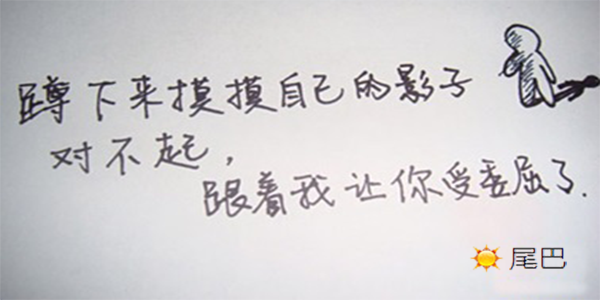 蹲下来摸摸自己的影子
对不起，
跟着我让你受委屈了.
尾巴